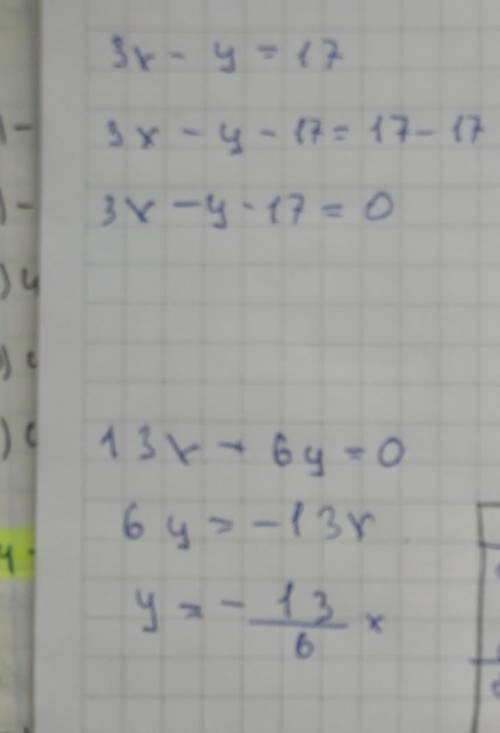 3x - y = 17
3x - y - 17 = 17 - 17
3x - y - 17 = 0
13x + 6y = 0
6y = -13x
y = - 13/6 x